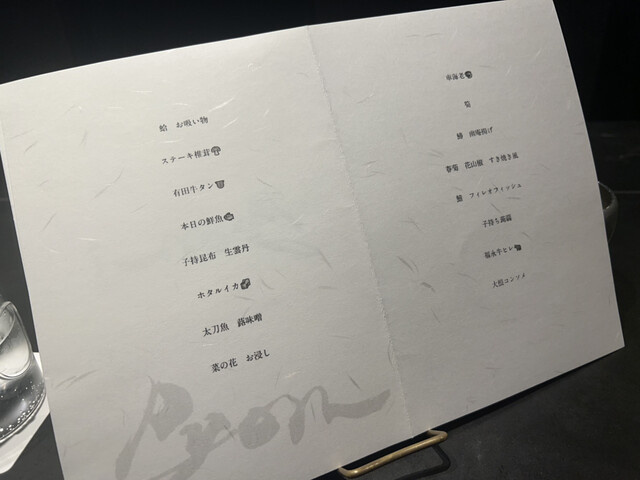 蛤 お吸い物
ステーキ椎茸
有田牛タン
本日の鮮魚
子持昆布 生雲丹
ホタルイカ
太刀魚 蕗味噌
菜の花 お浸し
車海老
筍
南蛮揚げ
春菊 花山椒 すき焼き風
フィレオフィッシュ
子持ち蒟蒻
福永牛ヒレ
大根コンソメ